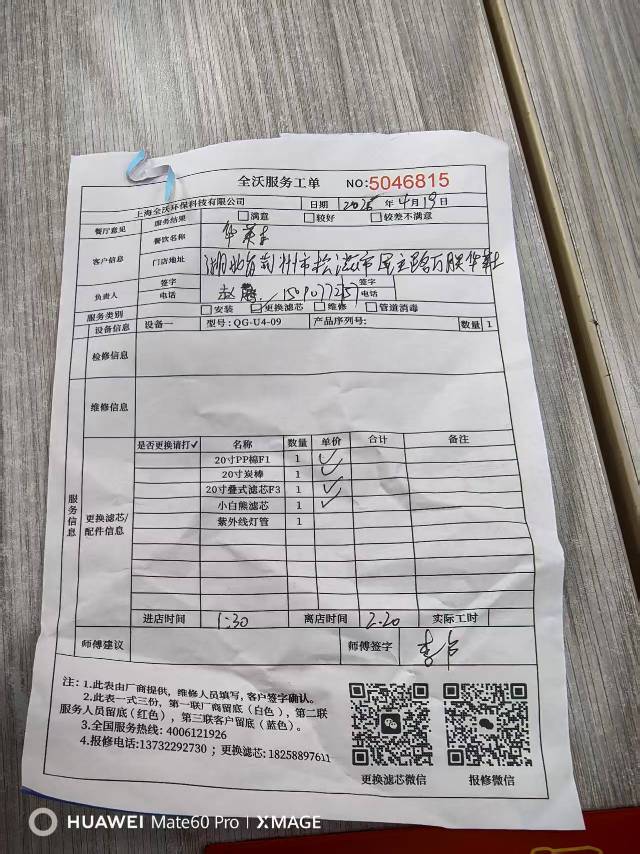 全沃服务工单 NO:5046815
上海全沃环保科技有限公司 日期 2025 年 4月19日
餐厅意见 服务结果 满意 较好 较差不满意
客户信息 餐饮名称 华莱士
门店地址 湖北省荆州市松滋市民主路万联华莱士
负责人 签字 赵 签字
电话 电话
服务类别 安装 更换滤芯 维修 管道消毒
设备信息 设备一 型号:QG-U4-09 产品序列号: 数量 1
检修信息
维修信息
服务信息
更换滤芯/配件信息
是否更换请打✓ 名称 数量 单价 合计 备注
20寸PP棉F1 1 ✓
20寸炭棒 1 ✓
20寸叠式滤芯F3 1 ✓
小白熊滤芯 1 ✓
紫外线灯管 1
进店时间 1:30 离店时间 2.20 实际工时
师傅建议 师傅签字
注：1.此表由厂商提供，维修人员填写，客户签字确认。
2.此表一式三份，第一联厂商留底（白色），第二联
服务人员留底（红色），第三联客户留底（蓝色）。
3.全国服务热线: 4006121926
4.报修电话:13732292730 ；更换滤芯: 18258897611
更换滤芯微信 报修微信
HUAWEI Mate60 Pro | XMAGE